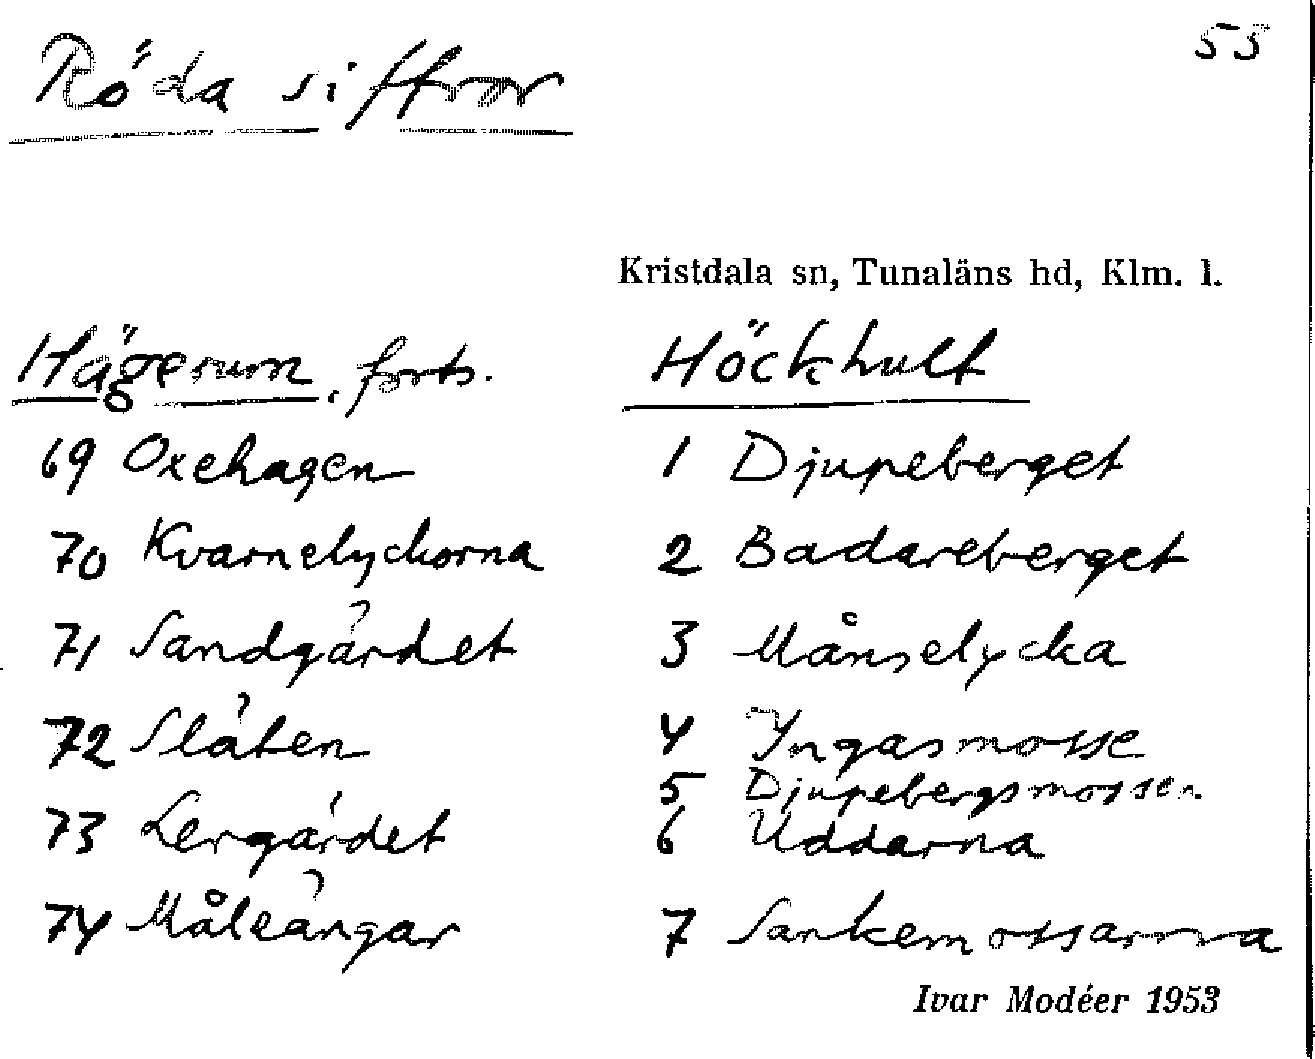 55
Röda siffror
Kristdala sn, Tunaläns hd, Klm. l.
Hägerum, forts.
69 Oxehagen
70 Kvarnelyckorna
71 Sandgärdet
72 Släten
73 Lergärdet
74 Måleängar
Höckhult
1 Djupeberget
2 Badareberget
3 Månselycka
4 Yngasmosse
5 Djupebergsmossen
6 Uddarna
7 Sankemossarna
Ivar Modéer 1953